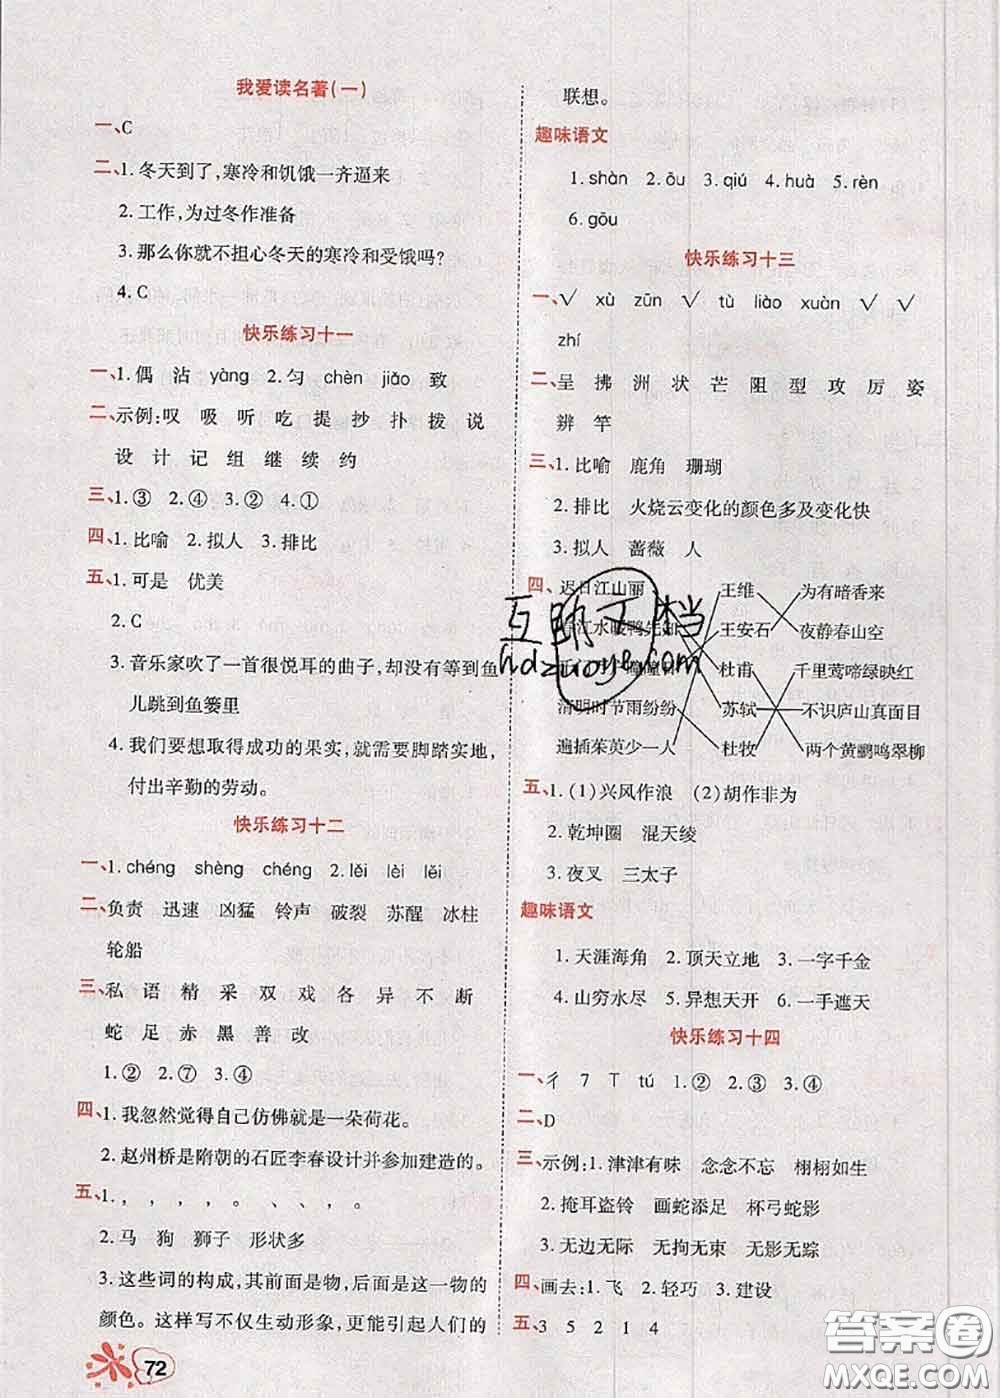 我爱读名著(一)
一、C
二、1. 冬天到了,寒冷和饥饿一齐逼来
2. 工作,为过冬作准备
3. 那么你就不担心冬天的寒冷和受饿吗?
4. C
快乐练习十一
一、1. 偶 沾 yàng 2. 匀 chèn jiǎo 致
二、示例:叹 吸 听 吃 提 抄 扑 拨 说
设 计 记 组 继 续 约
三、1. ③ 2. ④ 3. ② 4. ①
四、1. 比喻 2. 拟人 3. 排比
五、1. 可是 优美
2. C
3. 音乐家吹了一首很悦耳的曲子,却没有等到鱼
儿跳到鱼篓里
4. 我们要想取得成功的果实,就需要脚踏实地,
付出辛勤的劳动。
快乐练习十二
一、1. chéng shèng chéng 2. lěi lèi lěi
二、负责 迅速 凶猛 铃声 破裂 苏醒 冰柱
轮船
三、私 语 精 采 双 戏 各 异 不 断
蛇 足 赤 黑 善 改
1. ② 2. ⑦ 3. ④
四、1. 我忽然觉得自己仿佛就是一朵荷花。
2. 赵州桥是隋朝的石匠李春设计并参加建造的。
五、1. , , , , 。 、 、 , 。
2. 马 狗 狮子 形状多
3. 这些词的构成,其前面是物,后面是这一物的
颜色。这样写不仅生动形象,更能引起人们的
72
联想。
趣味语文
1. shàn 2. ōu 3. qiú 4. huà 5. rèn
6. gōu
快乐练习十三
一、√ xù zūn √ tù liào xuàn √ √
zhí
二、呈 拂 洲 状 芒 阻 型 攻 厉 姿
辨 竿
三、1. 比喻 鹿角 珊瑚
2. 排比 火烧云变化的颜色多及变化快
3. 拟人 蔷薇 人
四、迟日江山丽 王维 为有暗香来
春江水暖鸭先知 王安石 夜静春山空
杜甫 千里莺啼绿映红
清明时节雨纷纷 苏轼 不识庐山真面目
遍插茱萸少一人 杜牧 两个黄鹂鸣翠柳
互助文档
hdzuoye.com
五、1. (1)兴风作浪 (2)胡作非为
2. 乾坤圈 混天绫
3. 夜叉 三太子
趣味语文
1. 天涯海角 2. 顶天立地 3. 一字千金
4. 山穷水尽 5. 异想天开 6. 一手遮天
快乐练习十四
一、彳 7 T tú 1. ② 2. ③ 3. ①
二、D
三、示例:1. 津津有味 念念不忘 栩栩如生
2. 掩耳盗铃 画蛇添足 杯弓蛇影
3. 无边无际 无拘无束 无影无踪
四、画去:1. 飞 2. 轻巧 3. 建设
五、3 5 2 1 4
答案圈
MXQE.COM